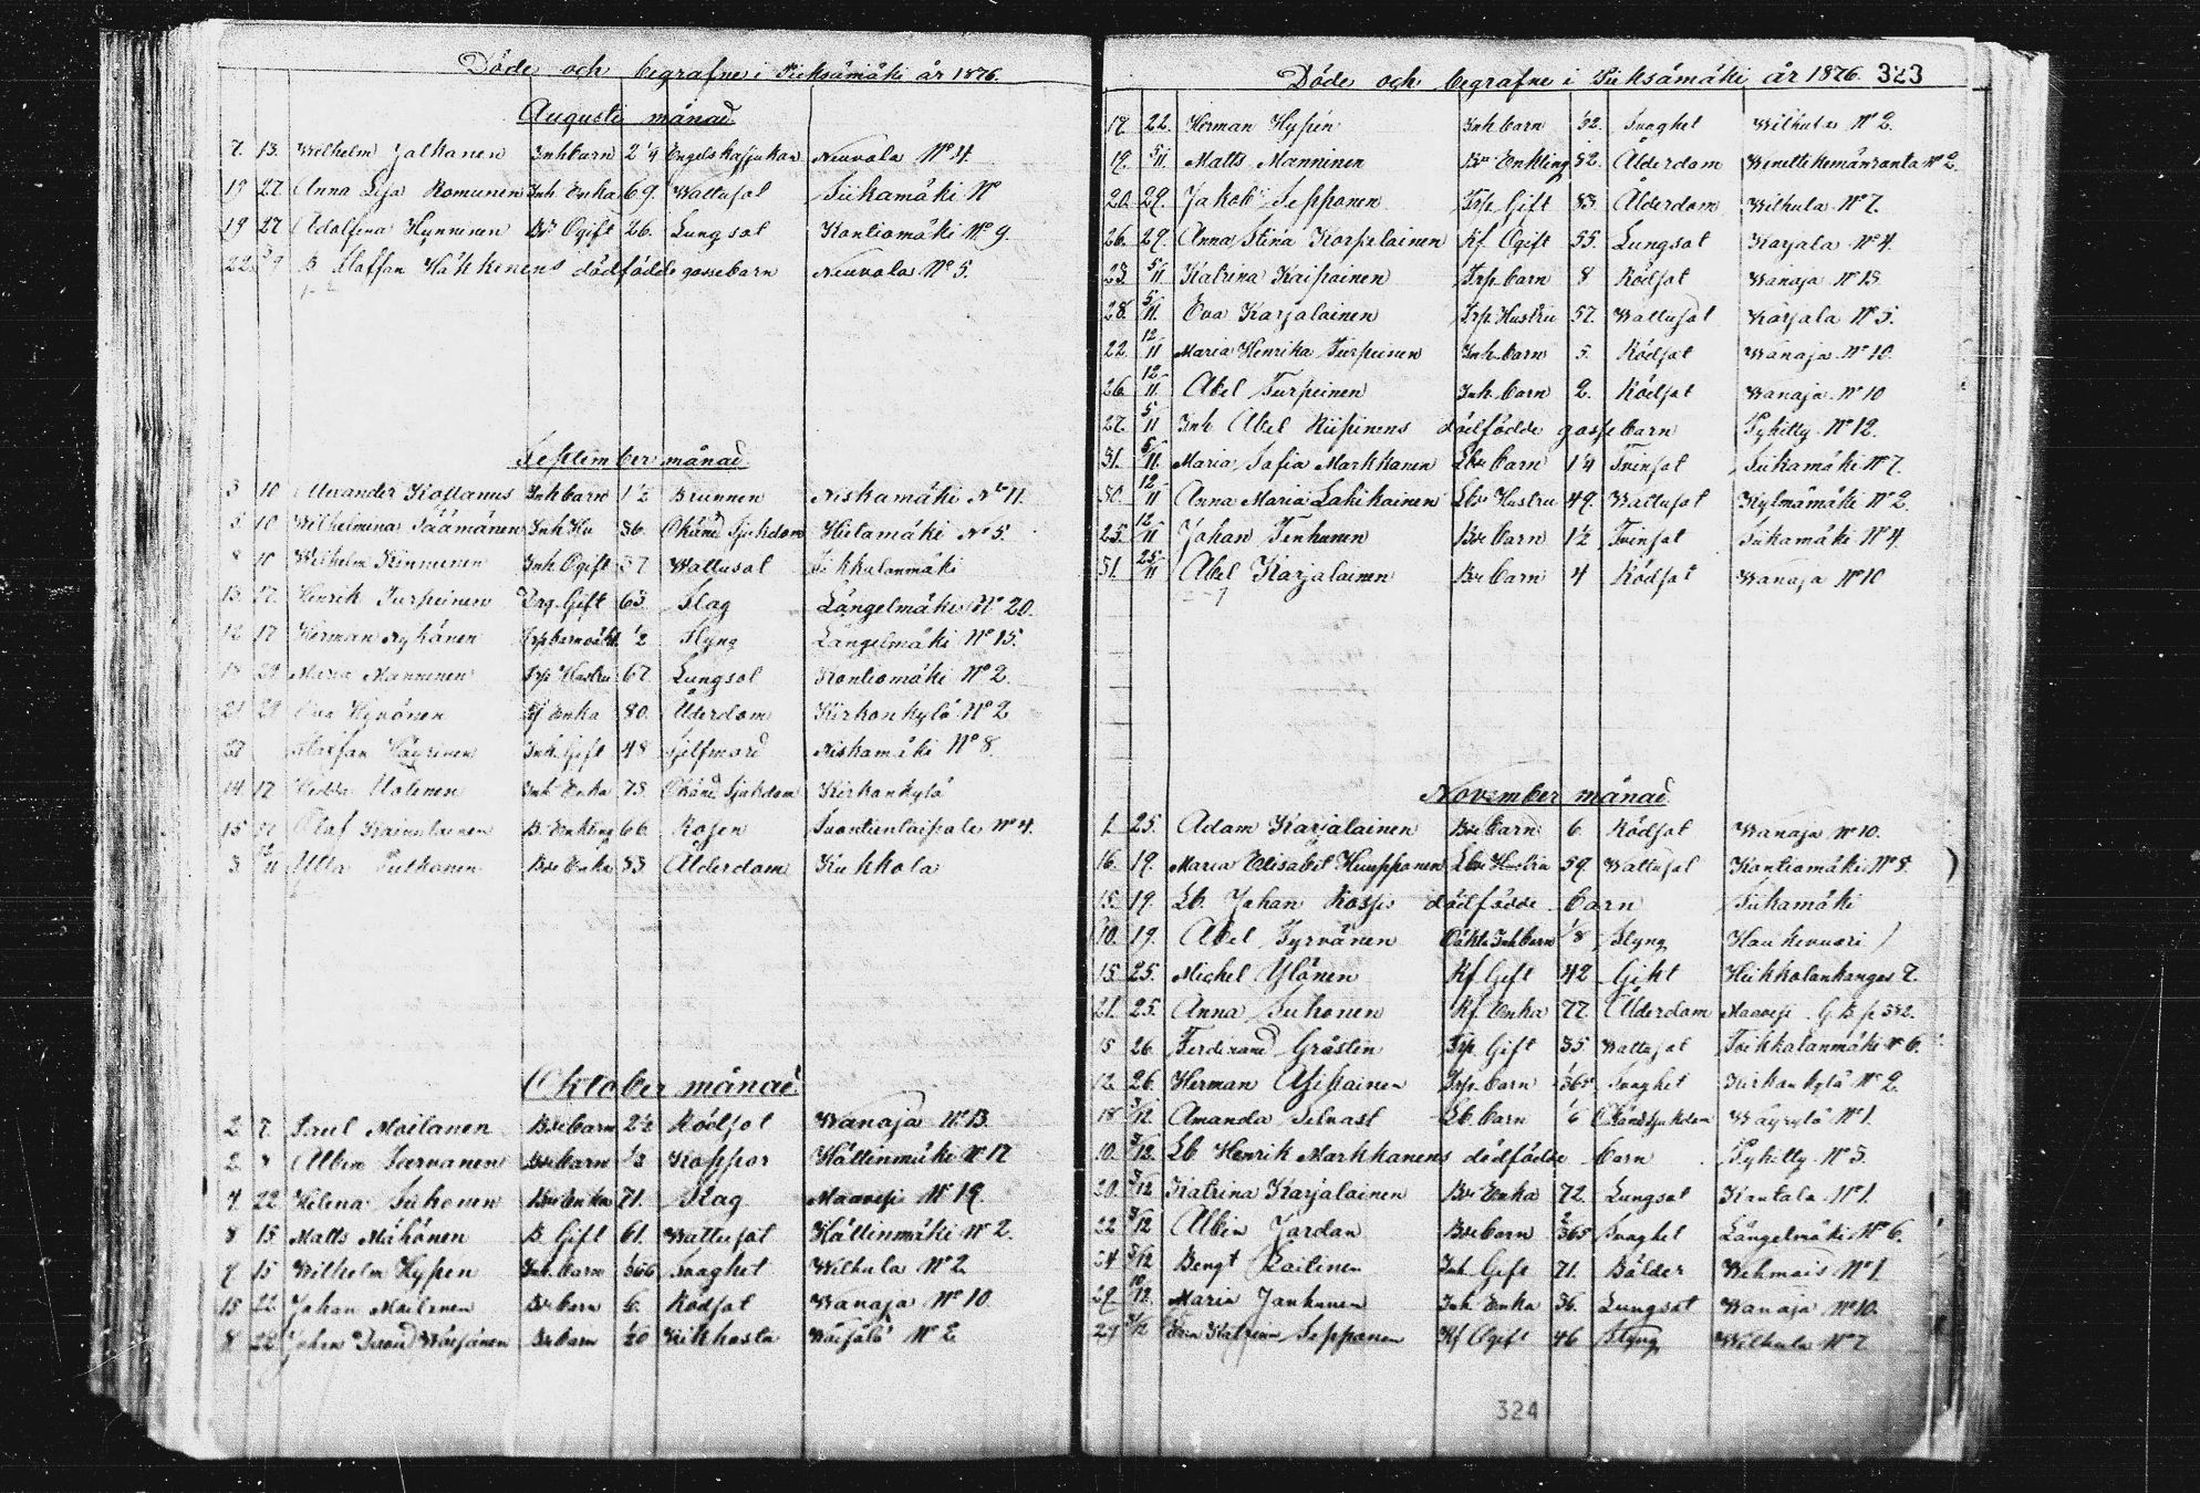 Döde och begrafne i Pieksämäki år 1876.
Augusti månad
7. 13. Wilhelm Jalkanen Inh barn 2 1/4 Engelska sjukan Neuvola No 4.
19 27 Anna Lisa Romunen Inh Enka 69. Wattusot Siikamäki No
19 27 Adolfina Hynninen Bdr Ogift 26. Lungsot Kontiomäki No 9.
22 B Staffan Häkkinens dödfödde gossebarn Neuvola No 5.
September månad
3 10 Alexander Kollanus Inh barn 1 1/2 Brunnen Niskamäki No 11.
5 10 Wilhelmina Säämänen Inh Hu 36. Okänd Sjukdom Hietamäki No 5.
8 10 Wilhelm Kinnunen Inh Ogift 57 Wattusot
13. 17. Henrik Turpeinen Gift 63. Slag Längelmäki No 20.
12 17 Herman Nykänen Trp barn oäkt. 1/2 Styng Längelmäki No 15.
29 Maria Manninen Trp Hustru 67. Lungsot Kontiomäki No 2.
21 29 Eva Hyvönen Enka 80. Ålderdom Kirkonkylä No 2
Staffan Inh Gift 48 Sjelfmord Niskamäki No 8.
14 17 Holinen Inh Enka 75. Okänd Sjukdom Kirkonkylä
15 17 Olof Kainulainen B. Enkling 66. Rosen Suontienlaipale No 4.
3. Ulla Pulkonen Bdr Enka 83. Ålderdom Kukkola
Oktober månad
2 7. Paul Moilanen Bdr barn 2 1/2 Rödsot Wanaja No 13.
2. 8 Albin Tarvanen Bdr barn 1/3 Koppor Hällinmäki No 17
4 22 Helena Suhonen Bdr Enka 71. Slag Maavesi No 19.
8 15 Matts Mähönen B. Gift 61. Wattusot Hällinmäki No 2.
7 15 Wilhelm Hypen Inh. barn Svaghet Wilhula No 2
15 22 Johan Moilanen Bdr barn 6. Rödsot Wanaja No 10
8 22 Johan Bdr barn Kikhosta No 2
Döde och begrafne i Pieksämäki år 1876. 323
19. 22. Herman Hypén Inh barn Svaghet Wilhula No 2.
19. 5/11 Matts Manninen Bdr Enkling 82. Ålderdom No 2.
20. 29. Jakob Sepponen Trp Gift 83. Ålderdom Wilhula No 7.
26. 29. Anna Stina Korpelainen Kf Ogift 55. Lungsot Karjala No 4.
23. 5/11 Katrina Kaipainen Trp barn 8 Rödsot Wanaja No 13
28. 5/11. Eva Karjalainen Trp. Hustru 57. Wattusot Karjala No 5.
22. 12/11 Maria Henrika Turpeinen Inh. barn 5. Rödsot Wanaja No 10.
26. 12/11. Abel Turpeinen Inh. barn 2. Rödsot Wanaja No 10
27. 5/11 Inh Abel Riipinens dödfödde gossebarn Pyhitty No 12.
31. 5/11. Maria Sofia Markkanen Lbr barn 1/4 Tvinsot Siikamäki No 7.
30. 12/11 Anna Maria Lahikainen Lbr Hustru 49. Wattusot Kylmämäki No 2.
25. 12/11 Johan Tenhunen Bdr barn 1 1/2 Tvinsot Siikamäki No 4.
31. 25/11 Abel Karjalainen Bdr barn 4 Rödsot Wanaja No 10
November månad
1. 25. Adam Karjalainen Bdr barn 6. Rödsot Wanaja No 10.
16. 19. Maria Elisabet Humpponen Lbr Hustru 59. Wattusot Kontiomäki No 8.
15. 19. Lb. Johan Kossis dödfödde barn Siikamäki
10. 19. Abel Tyrvänen Oäkta Inh barn 1/8 Styng Haukivuori
15. 25. Michel Ylönen Kf. Gift 42 Gikt Heikkolankangas 7.
21. 25. Anna Suhonen Kf. Enka 77. Ålderdom Maavesi G B p 352.
15 26 Ferdinand Gråsten Trp Gift 35 Wattusot Toikkalanmäki No 6.
12. 26. Herman Asikainen Trp. barn 1/365 Svaghet Kirkonkylä No 2
18 3/12. Amanda Selvast Lb. barn 1/6 Okänd sjukdom Wäyrylä No 1.
10. 3/12. Lb Henrik Markkanens dödfödde barn Pyhitty No 3.
20. 3/12 Katrina Karjalainen Bdr Enka 72. Lungsot Kantala No 1.
22 3/12 Albin Jordan Bdr barn 2/365 Svaghet Längelmäki No 6.
24 3/12 Bengt Inh Gift 71. Bölder Wehmais No 1.
29 10/12. Maria Janhunen Inh Enka 36. Lungsot Wanaja No 10.
29 3/12 Katrina Seppanen Kf Ogift 46 Styng Wilhula No 7
324